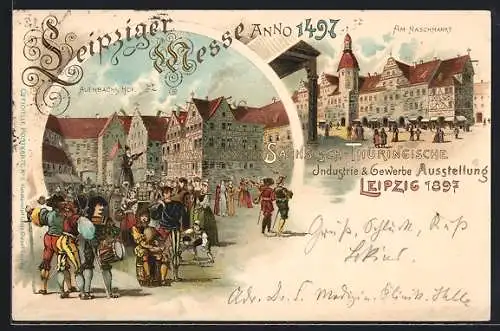 Leipziger Messe Anno 1497
Auerbachs Hof.
Am Naschmarkt
Sächsisch-Thüringische
Industrie & Gewerbe Ausstellung
Leipzig 1897
Gruß, Schluck, Kuß
Adr. Dr. S. Medizin. Klinik Halle